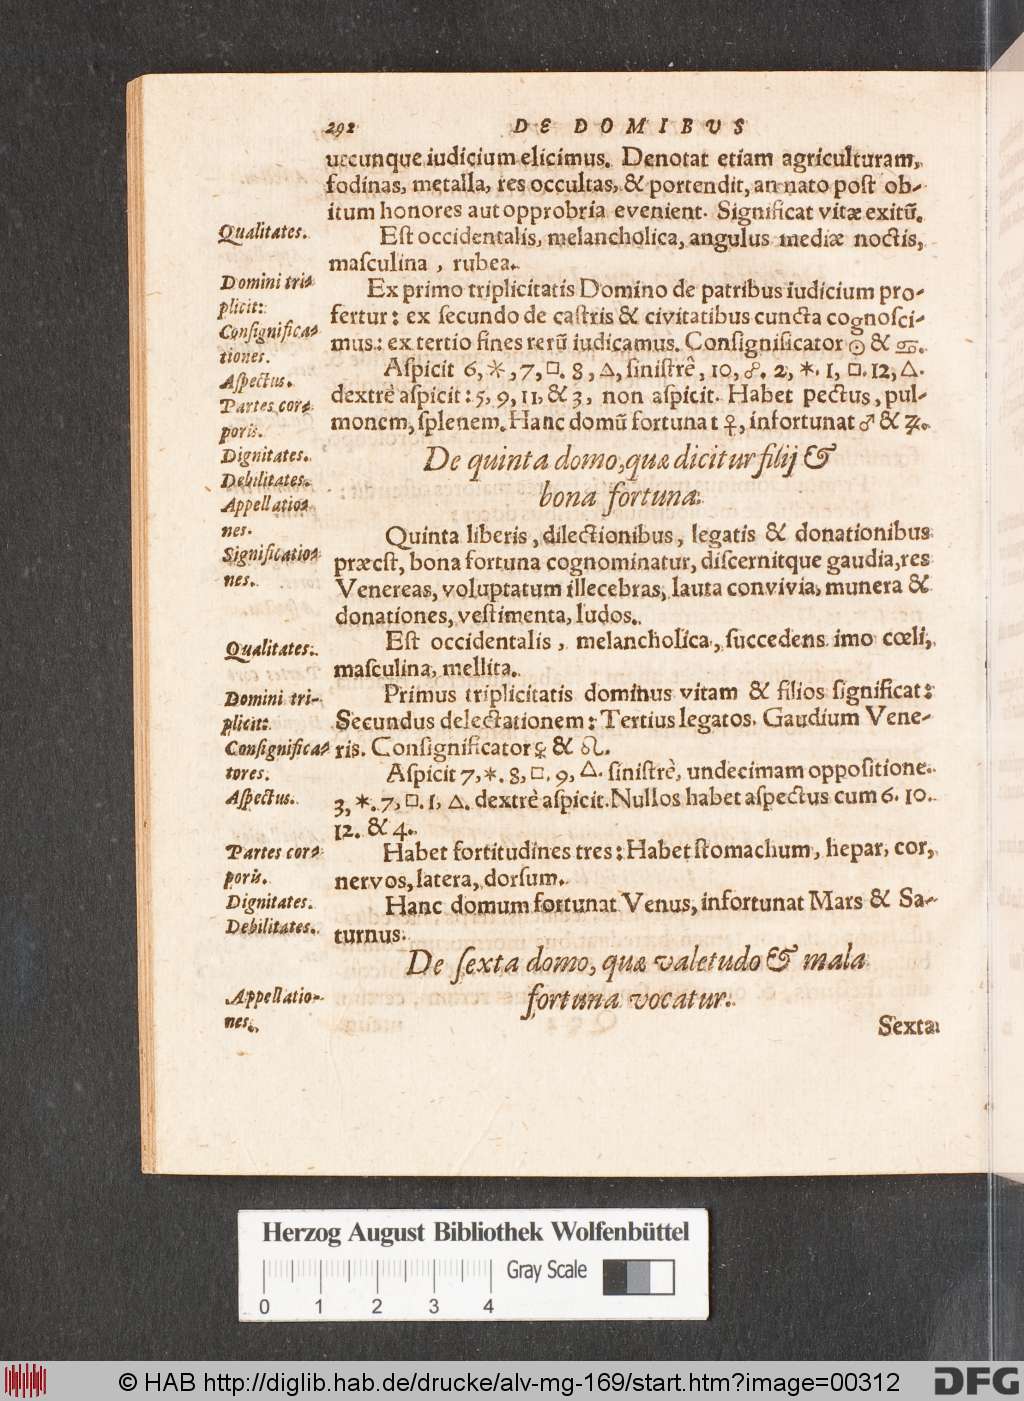 292 DE DOMIBVS
uecunque iudicium elicimus. Denotat etiam agriculturam,
fodinas, metalla, res occultas, & portendit, an nato post ob-
itum honores aut opprobria evenient. Significat vitæ exitũ.
Qualitates. Est occidentalis, melancholica, angulus mediæ noctis,
masculina, rubea.
Domini tri- Ex primo triplicitatis Domino de patribus iudicium pro-
plicit: fertur: ex secundo de castris & civitatibus cuncta cognosci-
Consignifica- mus: ex tertio fines rerũ iudicamus. Consignificator ☉ & ♋.
tiones.
Aspectus. Aspicit 6, ⚹, 7, □. 8, △, sinistrê, 10, ☍. 2, ⚹. 1, □. 12, △.
Partes cor- dextrè aspicit: 5, 9, 11, & 3, non aspicit. Habet pectus, pul-
poris. monem, splenem. Hanc domũ fortunat ♀, infortunat ♂ & ♃.
Dignitates. De quinta domo, quæ dicitur filij &
Debilitates.
Appellatio- bona fortuna.
nes. Quinta liberis, dilectionibus, legatis & donationibus
Significatio- præest, bona fortuna cognominatur, discernitque gaudia, res
nes. Venereas, voluptatum illecebras, lauta convivia, munera &
donationes, vestimenta, ludos.
Qualitates. Est occidentalis, melancholica, succedens imo cœli,
masculina, mellita.
Domini tri- Primus triplicitatis dominus vitam & filios significat:
plicit: Secundus delectationem: Tertius legatos. Gaudium Vene-
Consignifica- ris. Consignificator ♀ & ♌.
tores. Aspicit 7, ⚹. 8, □. 9, △. sinistrè, undecimam oppositione.
Aspectus. 3, ⚹. 7, □. 1, △. dextrè aspicit. Nullos habet aspectus cum 6. 10.
12. & 4.
Partes cor- Habet fortitudines tres: Habet stomachum, hepar, cor,
poris. nervos, latera, dorsum.
Dignitates. Hanc domum fortunat Venus, infortunat Mars & Sa-
Debilitates. turnus.
De sexta domo, quæ valetudo & mala
Appellatio- fortuna vocatur.
nes. Sexta
Herzog August Bibliothek Wolfenbüttel
Gray Scale
0 1 2 3 4
© HAB http://diglib.hab.de/drucke/alv-mg-169/start.htm?image=00312 DFG